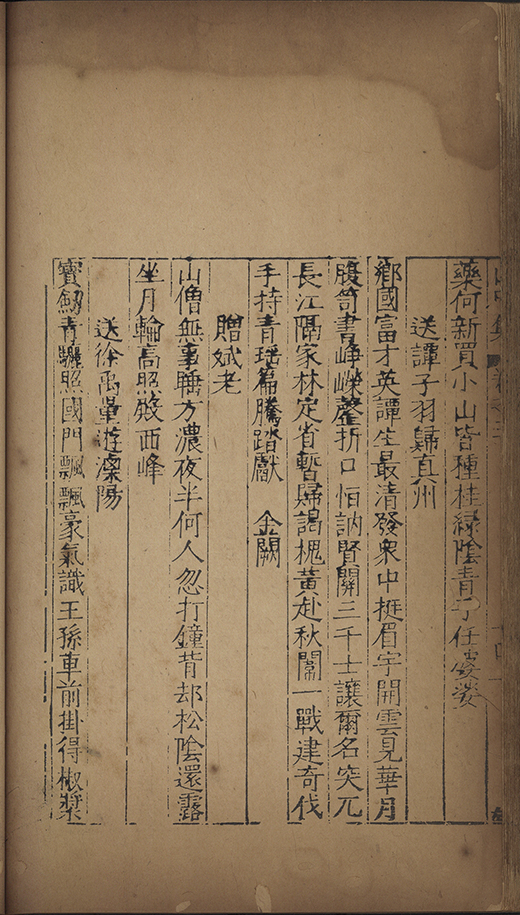 藥何新買小山皆種桂緑陰青子任婆娑
送譚子羽歸真州
鄉國富才英譚生最清發衆中挺眉宇開雲見華月
腹笥書崢嶸磬折口怕訥賢關三千士讓爾名突兀
長江隔家林定省暫歸謁槐黄赴秋闈一戰建奇伐
手持青瑶篇騰踏獻　金闕
贈斌老
山僧無事睡方濃夜半何人忽打鐘背却松陰還露
坐月輪高照殿西峰
送徐禹量遊陽
寶劔青驪照國門飄飄豪氣識王孫車前掛得椒漿